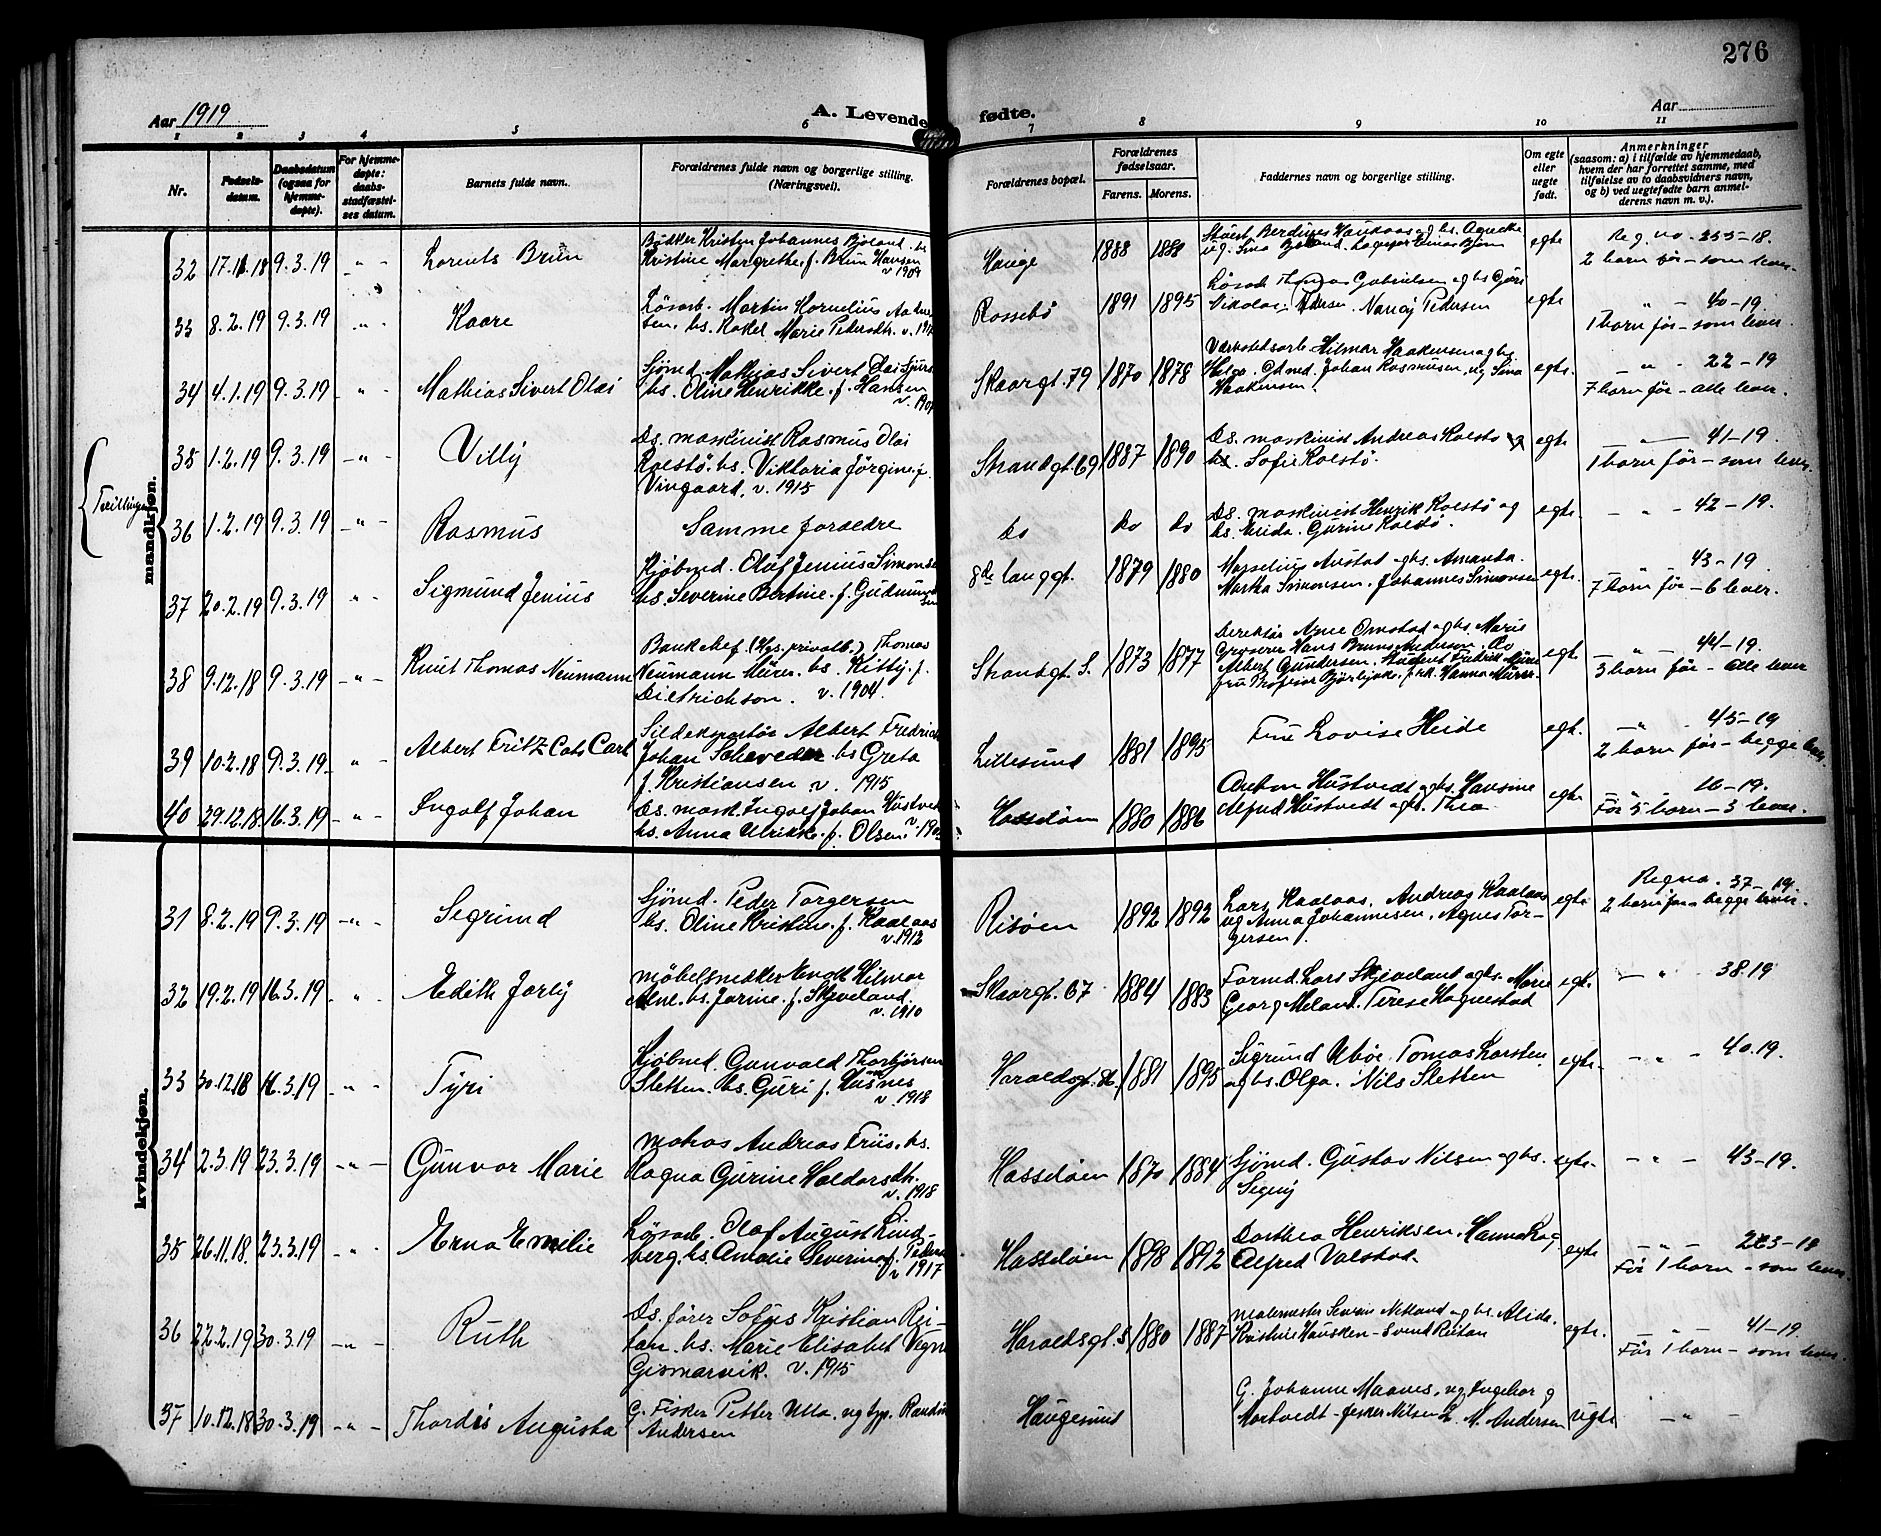 276
Aar 1919
A. Levende fødte.
Aar
1 2 3 4 5 6 7 8 9 10 11
Nr.
Fødsels-
datum.
Daabsdatum
(ogsaa for
hjemme-
døpte).
For hjemme-
døpte:
daabs-
stadfæstel-
ses datum.
Barnets fulde navn.
Forældrenes fulde navn og borgerlige stilling.
(Næringsvei).
Forældrenes bopæl.
Forældrenes
fødselsaar.
Farens. Morens.
Faddernes navn og borgerlige stilling.
Om egte
eller
uegte
født.
Anmerkninger
(saasom: a) i tilfælde av hjemmedaab,
hvem der har forrettet samme, med
tilføielse av to daabsvidners navn,
og b) ved uegtefødte barn anmel-
derens navn m. v.).
mandkjøn.
32 17.11.18 9.3.19 -"- Lorents Brun
Bødker Kristen Johannes Bjeland. hs
Kristine Margrethe. f. Brun Hansen
v 1909
Hauge 1888 1888
egte
Reg. no. 255-18.
2 born før - som lever.
33 8.2.19 9.3.19 -"- Kaare
Løsarb. Martin Kornelius
hs. Rakel Marie Pedersdtr. v.
Rossebø 1891 1895
Løsarb Thomas Gabrielsen og hs
Nikolai Nancy Pedersen
egte
-"- 40-19.
1 born før - som lever.
34 4.1.19 9.3.19 -"- Mathias Sivert Olai
Sjømd. Mathias Sivert Olai
hs. Oline Henrikke. f. Hansen
Skaargt. 79 1870 1878
Verkstedsarb. Hilmar Haakensen og hs.
Helga. Johan Rasmusen, ug Sina
Haakensen.
egte.
-"- 22-19
7 born før - alle lever.
Tvillinger
35 1.2.19 9.3.19 -"- Villy
Ds. maskinist Rasmus Olai
Roestø. hs. Viktoria Jørgine. f.
Vingaard. v. 1915
Strandgt. 69 1887 1890
Ds. maskinist Andreas Roestø og
hs. Sofie Roestø.
egte.
-"- 41-19.
1 born før - som lever.
36 1.2.19 9.3.19 -"- Rasmus
Samme foraedre
Do Do Do
Ds. maskinist Henrik Roestø og
hs. Gurine Roestø.
egte.
-"- 42-19.
37 20.2.19 9.3.19 -"- Sigmund Jenius
Kjøbmd. Olaf Jenius
hs. Severine Bertine. f. Gudmund
sen
8de langgt. 1879 1880
Marselius Austad og hs. Amanda.
Martha Simonsen. Johannes Simonsen
egte.
-"- 43-19.
7 born før - 6 lever.
38 9.12.18 9.3.19 -"- Knut Thomas Neumann
Bankchef. (Hgs. privatb.) Thomas
Neumann Mürer. hs. Kitty. f.
Dietrichson. v. 1904.
Strandgt. S. 1873 1877
Direktør Arne Omstad og hs. Marie
Groserer Hans Bruns Andersen. Do
Albert Gundersen. Student Fredrik
fru Profesor frk. Hanna
egte.
-"- 44-19.
3 born før - alle lever
39 10.2.18 9.3.19. -"- Albert Fritz Cato Carl
Sildeksportør Albert Fredrich
Johan Schrøeder hs Greta
f. Kristiansen v. 1915
Lillesund 1881 1895
Frue Lovise Heide
egte.
-"- 45-19
2 born før - begge lever.
40 29.12.18 16.3.19 -"- Ingolf Johan
Ds. mask. Ingolf Johan Hustvedt
hs. Anna Ulrikke. f. Olsen. v.
Hassdøen 1880 1886
Anton Hustvedt og hs. Hansine
Alfred Hustvedt og hs. Thea.
egte.
-"- 10-19.
Før 5 born - 3 lever.
kvindekjøn.
31 8.2.19 9.3.19 -"- Sigrund
Sjømd. Peder Torgersen
hs. Oline Kristine. f. Kaalaas
v. 1912
Risøen 1892 1892
Lars Kaalaas, Andreas Kaalaas
ug Anna Johannesen, Agnes Tor-
gersen.
egte.
Reg no. 37-19.
2 born før - begge lever.
32 19.2.19 16.3.19 -"- Edith Jorly
Møbelsnedker Hilmar
hs. Jorine. f. Skjeveland.
v. 1910
Skaargt. 67 1884 1883
Formd. Lars Skjeveland og hs. Marie
Georg Meland. Terese Hagnestad
egte.
-"- 38.19
33 30.12.18 16.3.19 -"- Tyri
Kjøbmd. Gunvald Thorbjørsen
Sletten. hs. Guri f. Husnes
v. 1918
Haraldsgt. 1881 1895
Sigrund Ubøe. Tomas Larsten
og hs. Olga. Nils Sletten
egte.
-"- 40.19.
34 2.3.19 23.3.19 -"- Gunvor Marie
Matros Andreas Friis. hs.
Ragna Gurine Haldorsdtr.
v. 1918
Hassdøen 1870 1884
Sjømd. Gustav Nilsen og hs.
Signy
egte.
-"- 43-19.
35 26.11.18. 23.3.19 -"- Erna Emilie
Løsarb. Olaf August Lind-
berg. hs. Amalie Severine. f.
v 1917
Hassdøen 1898 1892
Dorthea Henriksen, Hanna
Alfred Valstad.
egte
-"- 223-19
Før 1 born - som lever.
36 22.2.19 30.3.19 -"- Ruth
Ds. fører Sofus Kristian Rei-
tan. hs. Marie Elisabet
Gismarvik. v. 1915
Haraldsgt. S. 1880 1887
Malermester Severin Netland og hs. Alida.
Kristine Hausken - Svend Reitan
egte.
-"- 41-19.
Før 1 born - som lever.
37 10.12.18 30.3.19 -"- Thordis Augusta
G. Fisker Petter Ulla. ug typ.
Andersen
Haugesund
G. Johanne Maanes, ug Ingebor g
Mortvedt - fisker Nilsen L. M. Andersen
ugte
-"-